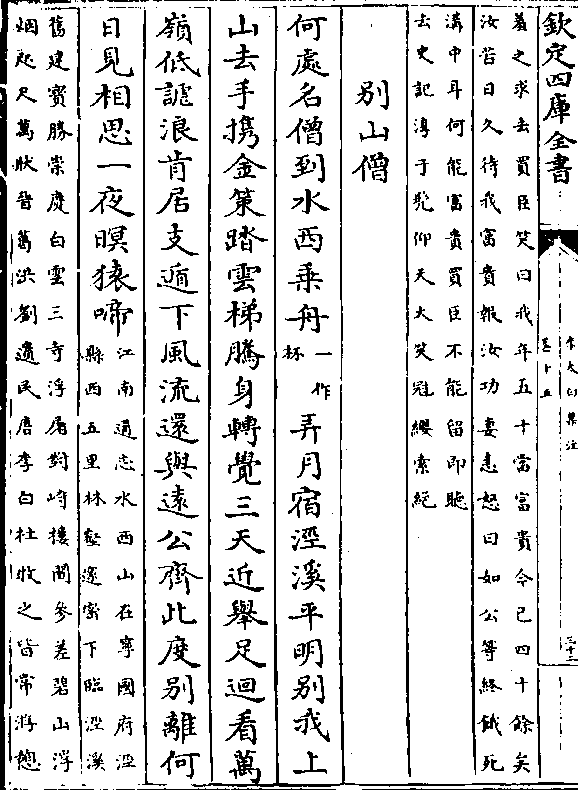 欽定四庫全書
李太白集注
卷十五
三十二
羞之求去買臣笑曰我年五十當富貴今已四十餘矣
汝苦日久待我富貴報汝功妻恚怒曰如公等終餓死
溝中耳何能富貴買臣不能留即聽
去史記淳于髡仰天大笑冠纓索絶
別山僧
何處名僧到水西乗舟一作杯弄月宿涇溪平明別我上
山去手攜金策踏雲梯騰身轉覺三天近舉足迴看萬
嶺低謔浪肯居支遁下風流還與遠公齊此度別離何
日見相思一夜暝猿啼江南通志水西山在寧國府涇
縣西五里林壑邃宻下臨涇溪
舊建寳勝崇慶白雲三寺浮屠對峙樓閣參差碧山浮
烟咫尺萬狀晉葛洪劉遺民唐李白杜牧之皆常游憩